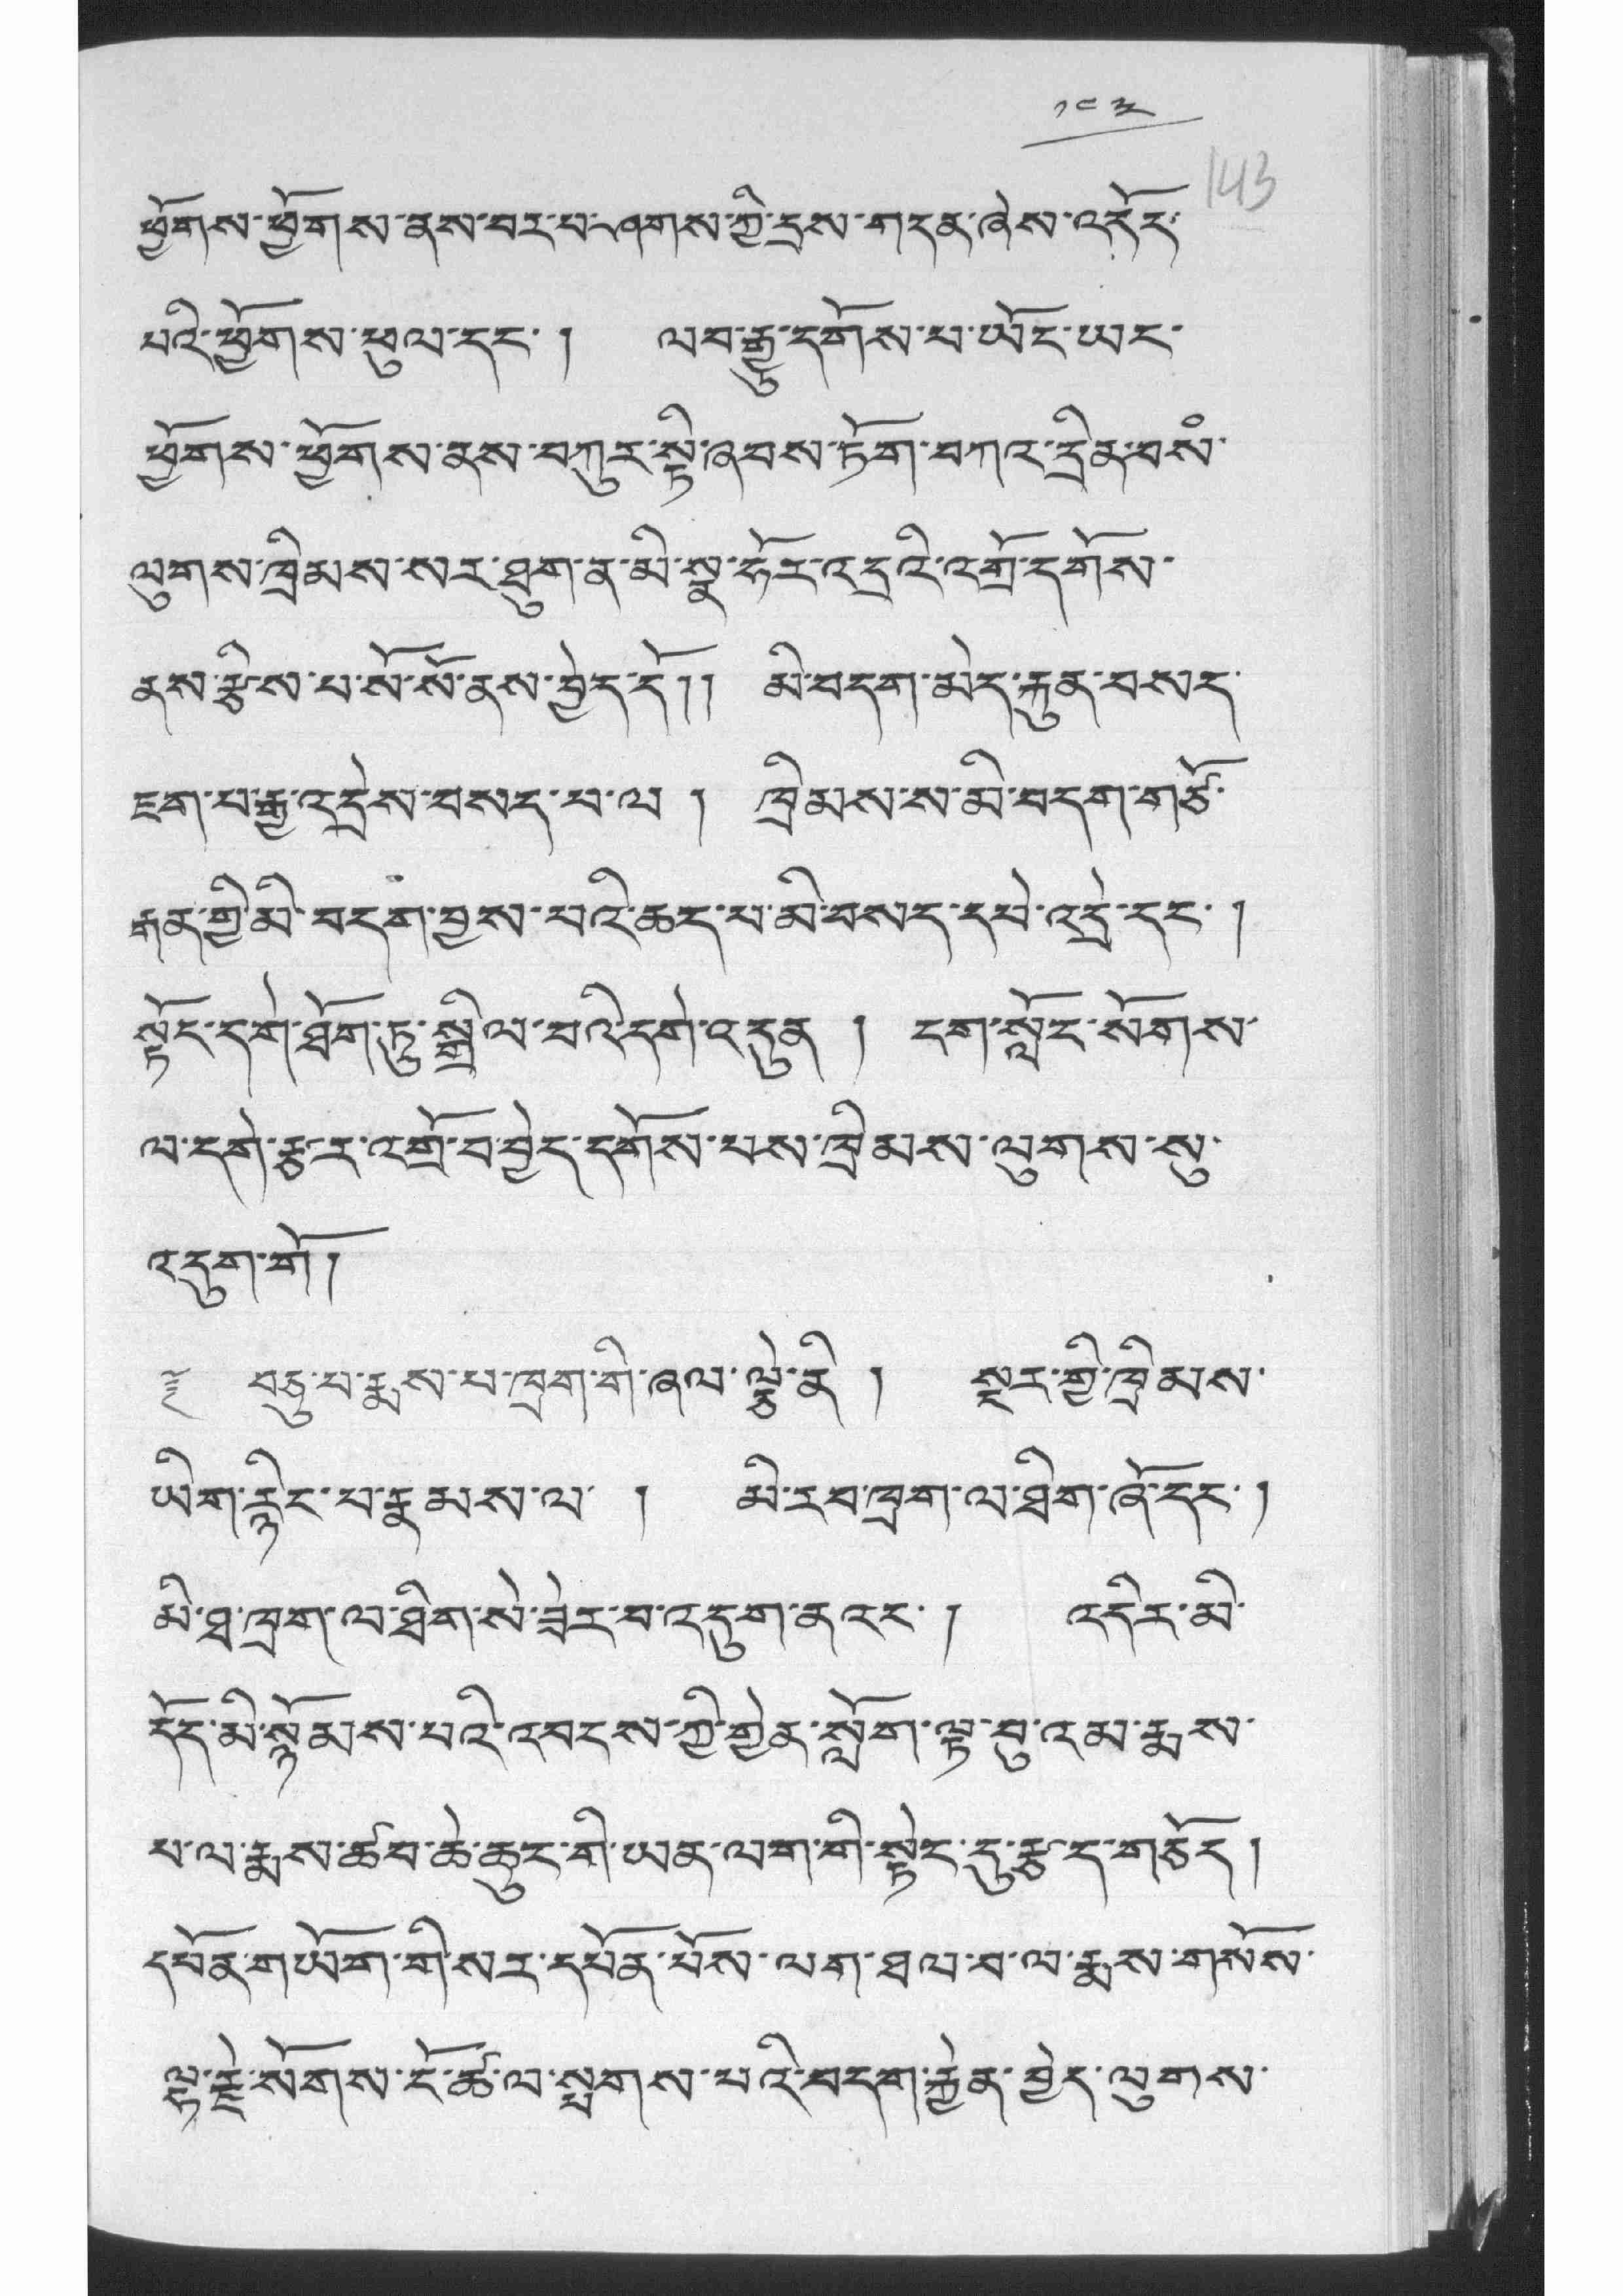 ༡༤༣
143
ཕྱོགས་ཕྱོགས་ནས་བར་པ་ཞགས་ཀྱི་དྲས་གདན་ཞེས་འདོར་
པའི་ཕྱོགས་ཕུལ་དང་། ལབ་རྒྱུ་དགོས་པ་ཡོད་ཡང་
ཕྱོགས་ཕྱོགས་ནས་བཀུར་སྟི་ཞབས་ཏོག་བཀའ་དྲིན་བསཾ་
ལུགས་ཁྲིམས་སར་ཐུག་ན་མི་སྣ་ཧོར་འདྲའི་འགྲོ་དགོས་
ནས་རྩིས་པ་སོ་སོ་ནས་བྱེད་དོ།། མི་བདག་མེད་རྐུན་བསད་
ཇག་པ་རྒྱ་འདྲེས་བསད་པ་ལ། ཁྲིམས་ས་མི་བདག་གཙོ་
རྒན་གྱི་མི་བདག་བྱས་པའི་ཆད་པ་མི་བསད་དཔེ་འདྲེ་དང་།
སྟོང་དགེ་ཐོག་ཏུ་སྒྲིལ་བའི་དགེ་འདུན། དག་སློང་སོགས་
ལ་དགེ་རྩར་འགྲོ་བ་བྱེད་དགོས་པས་ཁྲིམས་ལུགས་སུ་
འདུག་གོ།
༈ བཅུ་པ་རྨས་པ་ཁྲག་གི་ཞལ་ལྕེ་ནི། སྔར་གྱི་ཁྲིམས་
ཡིག་རྙིང་པ་རྣམས་ལ་། མི་རབ་ཁྲག་ལ་ཐིག་ཞོ་དང་།
མི་ཐ་ཁྲག་ལ་ཐིག་སེ་ཟེར་བ་འདུག་ན་འང་། འདིར་མི་
དོད་མི་སྙོམས་པའི་འབངས་ཀྱི་གྱེན་སློག་ལྟ་བུ་འམ་རྨས་
པ་ལ་རྨས་ཚབ་ཆེ་ཆུང་གི་ཡན་ལག་གི་སྟེང་དུ་རྩད་གཅོད།
དཔོན་གཡོག་གི་སར་དཔོན་པོས་ལག་ཐལ་བ་ལ་རྨས་གསོས་
ལྟ་རྗེ་སོགས་ངོ་ཚོ་ལ་སླགས་པའི་བདག་རྐྱེན་བྱེད་ལུགས་